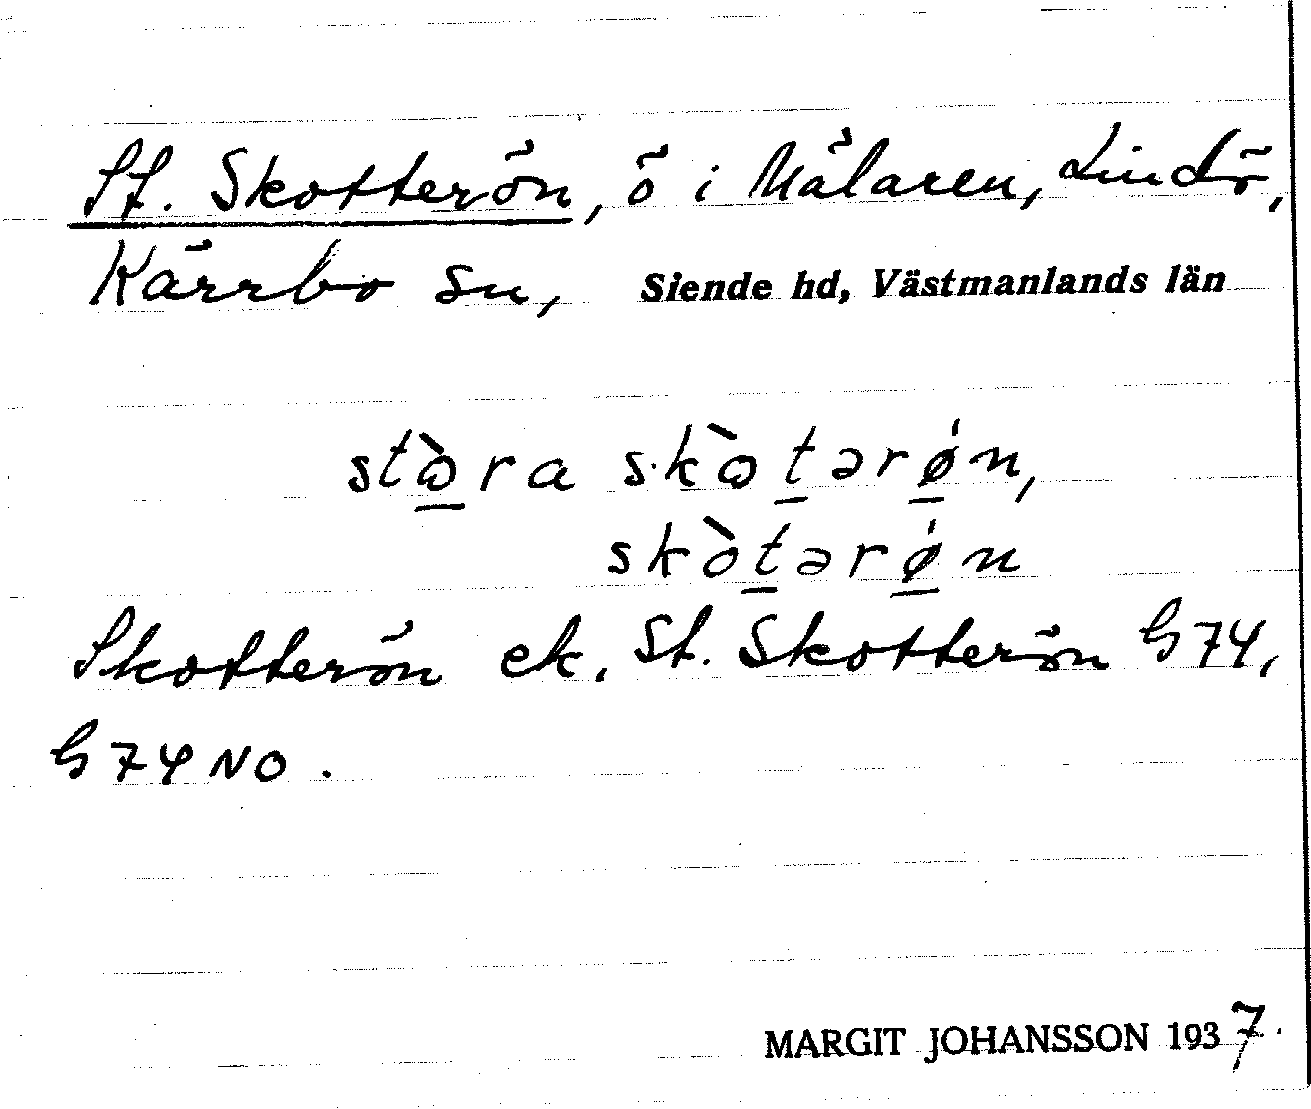 St. Skotterön, ö i Mälaren, Lindö,
Kärrbo sn, Siende hd, Västmanlands län
stò̱ra skòṯərǿ̱n,
skòṯərǿ̱n
Skotterön ek, St. Skotterön G74,
G74NO.
MARGIT JOHANSSON 1937.